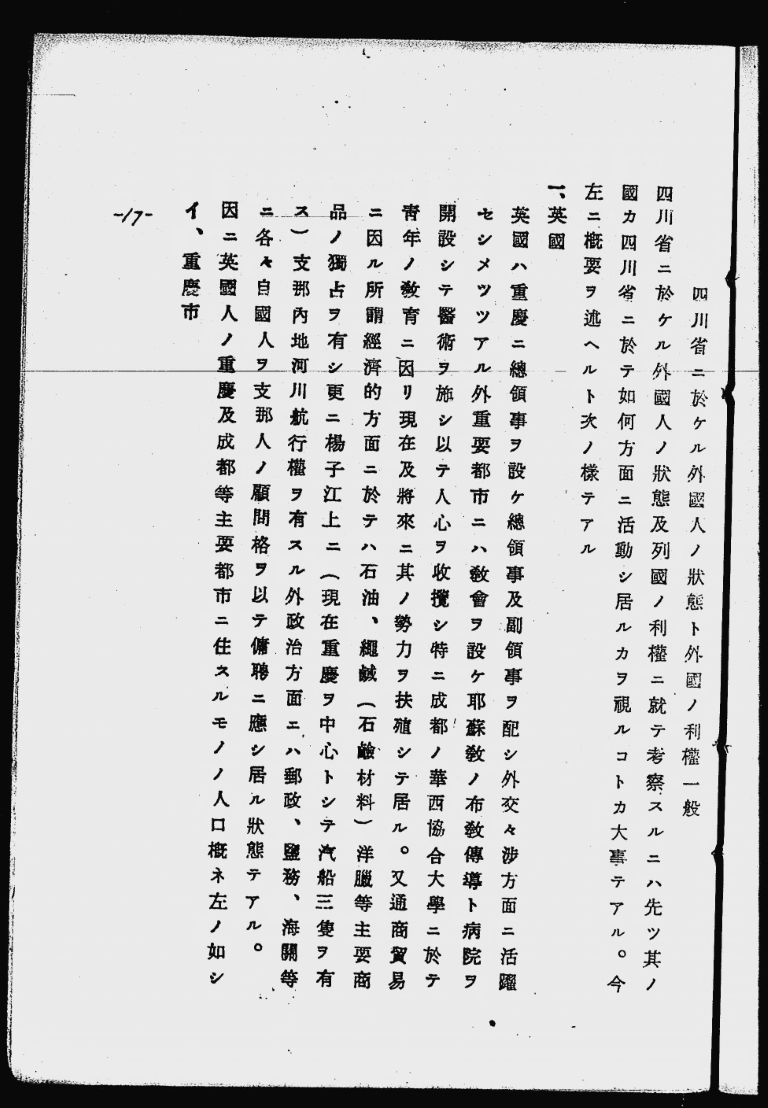 四川省ニ於ケル外國人ノ狀態ト外國ノ利權一般
四川省ニ於ケル外國人ノ狀態及列國ノ利權ニ就テ考察スルニハ先ツ其ノ
國カ四川省ニ於テ如何方面ニ活動シ居ルカヲ視ルコトカ大事テアル。今
左ニ概要ヲ述ヘルト次ノ樣テアル
一、英國
英國ハ重慶ニ總領事ヲ設ケ總領事及副領事ヲ配シ外交々涉方面ニ活躍
セシメツツアル外重要都市ニハ敎會ヲ設ケ耶蘇敎ノ布敎傳導ト病院ヲ
開設シテ醫術ヲ施シ以テ人心ヲ收攬シ特ニ成都ノ華西協合大學ニ於テ
靑年ノ敎育ニ因リ現在及將來ニ其ノ勢力ヲ扶殖シテ居ル。又通商貿易
ニ因ル所謂經濟的方面ニ於テハ石油、繩鹹(石鹼材料)洋臘等主要商
品ノ獨占ヲ有シ更ニ楊子江上ニ(現在重慶ヲ中心トシテ汽船三隻ヲ有
ス)支那內地河川航行權ヲ有スル外政治方面ニハ郵政、鹽務、海關等
ニ各々自國人ヲ支那人ノ顧問格ヲ以テ傭聘ニ應シ居ル狀態テアル。
因ニ英國人ノ重慶及成都等主要都市ニ住スルモノノ人口槪ネ左ノ如シ
イ、重慶市
-17-